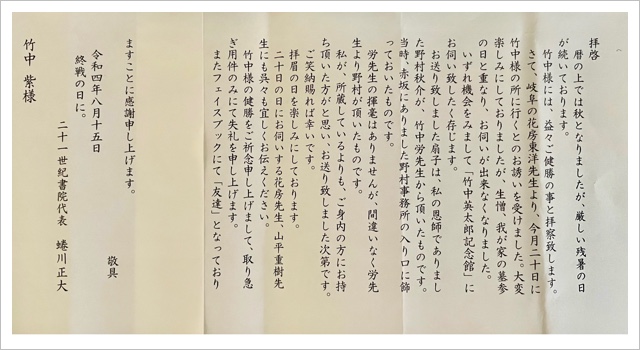 拝啓
暦の上では秋となりましたが、厳しい残暑の日
が続いております。
竹中様には、益々ご健勝の事と拝察致します。
さて、岐阜の花房東洋先生より、今月二十日に
竹中様の所に行くとのお誘いを受けました。大変
楽しみにしておりましたが、生憎、我が家の墓参
の日と重なり、お伺いが出来なくなりました。
いずれ機会をみまして「竹中英太郎記念館」に
お伺い致したく存じます。
お送り致しました扇子は、私の恩師でありまし
た野村秋介が、竹中労先生から頂いたものです。
当時、赤坂にありました野村事務所の入り口に飾
っておいたものです。
労先生の揮毫はありませんが、間違いなく労先
生より野村が頂いたものです。
私が、所蔵しているよりも、ご身内の方にお持
ち頂いた方がと思い、お送り致しました次第です。
ご笑納賜れば幸いです。
拝眉の日を楽しみにしております。
二十日の日にお伺いする花房先生、山平重樹先
生にも呉々も宜しくお伝えください。
竹中様の健勝をご祈念申し上げまして、取り急
ぎ用件のみにて失礼を申し上げます。
またフェイスブックにて「友達」となっており
ますことに感謝申し上げます。
敬具
令和四年八月十五日
終戦の日に。
二十一世紀書院代表　蜷川正大
竹中　紫様